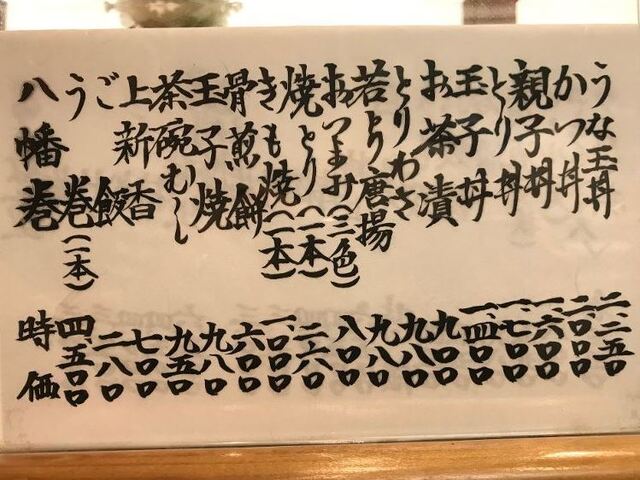 うな玉丼 二、二五〇
かつ丼 二、〇〇〇
親子丼 一、六〇〇
とり丼 一、七〇〇
玉子丼 一、四〇〇
お茶漬 九〇〇
とりわさ 九八〇
若とり唐揚 九八〇
おつまみ(三色) 八〇〇
焼とり(一本) 二六〇
きも焼(一本) 一、〇〇〇
骨煎餅 六〇〇
玉子焼 九八〇
茶碗むし 九五〇
上新香 七〇〇
ご飯 二八〇
う巻(一本) 四、五〇〇
八幡巻 時価